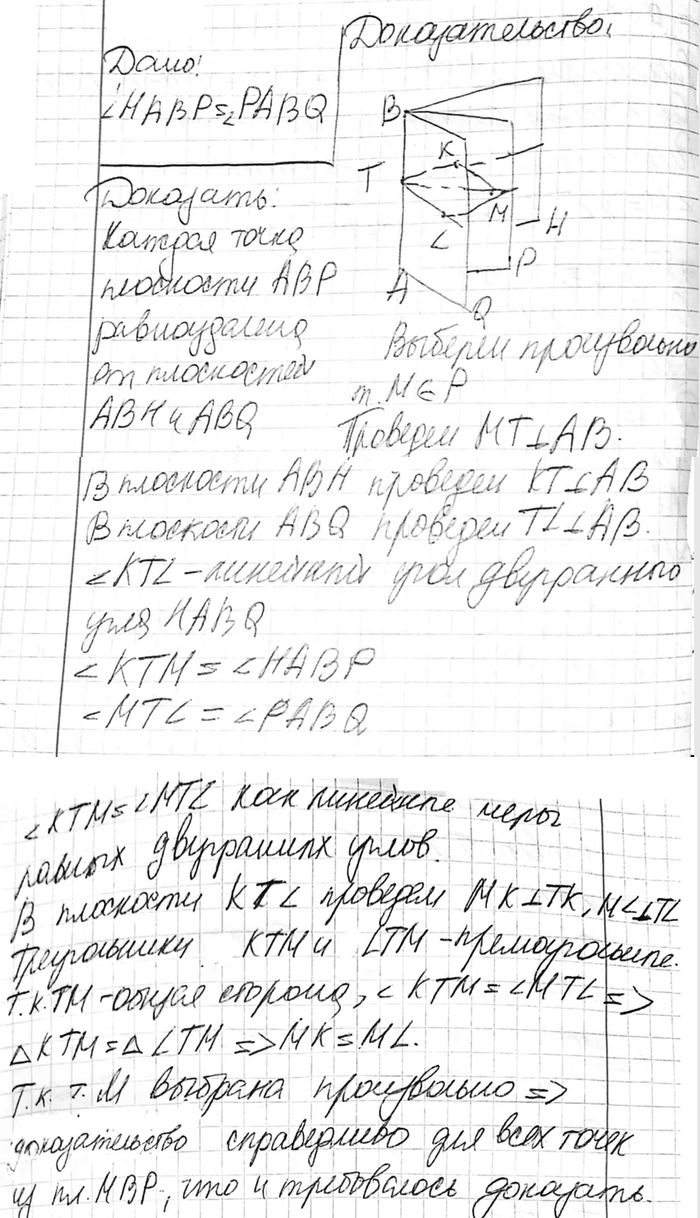 Дано:
∠HABP=∠PABQ
Доказать:
Каждая точка
плоскости ABP
равноудалена
от плоскостей
ABH и ABQ
Доказательство:
B
K
T
M
H
L
P
A
Q
Выберем произвольно
т. M ∈ P
Проведем MT⊥AB.
В плоскости ABH проведем KT⊥AB
В плоскости ABQ проведем TL⊥AB.
∠KTL - линейный угол двугранного
угла HABQ
∠KTM = ∠HABP
∠MTL = ∠PABQ
∠KTM = ∠MTL как линейные меры
равных двугранных углов.
В плоскости KTL проведем MK⊥TK, ML⊥TL
Треугольники KTM и LTM - прямоугольные.
Т.к. TM - общая сторона, ∠KTM = ∠MTL =>
△KTM = △LTM => MK = ML.
Т.к. т. M выбрана произвольно =>
доказательство справедливо для всех точек
из пл. MBP, что и требовалось доказать.